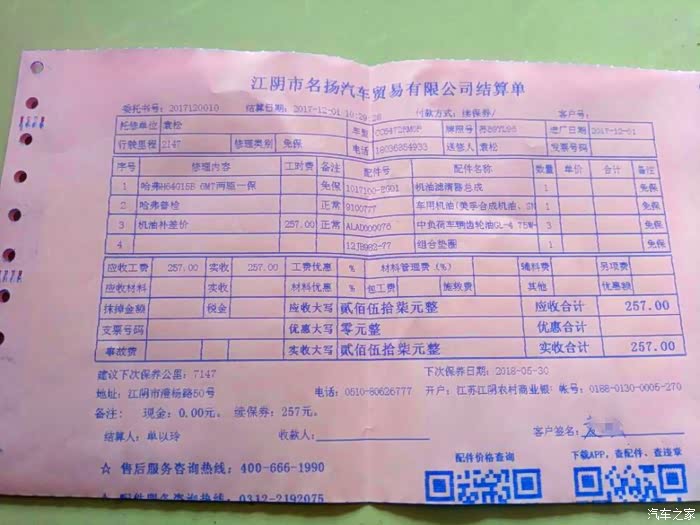 江阴市名扬汽车贸易有限公司结算单
委托书号：2017120010 结算日期：2017-12-01 10:29:26 付款方式：续保券/ 客户号：
托修单位 袁松 车型 牌照号 进厂日期 2017-12-01
行驶里程 2147 修理类别 免保 电话 18036354933 送修人 袁松 发票号码
序号 修理内容 工时费 备注 配件号 配件名称 数量 单价 合计 备注
1 哈弗H64G15B GM7两驱一保 免保 1017100-EG01 机油滤清器总成 1 免保
2 哈弗普检 正常 9100777 车用机油(美孚合成机油、SN 1 免保
3 机油补差价 257.00 正常 ALAD000076 中负荷车辆齿轮油GL-4 75W- 3 免保
4 12JB982-77 组合垫圈 1 免保
应收工费 257.00 实收 257.00 工费优惠 % 材料管理费(%) 辅料费 另项费
应收材料 实收 材料优惠 % 包工费 施救费 其他 优惠额
抹掉金额 税金 应收大写 贰佰伍拾柒元整 应收合计 257.00
支票号码 优惠大写 零元整 优惠合计
事故费 实收大写 贰佰伍拾柒元整 实收合计 257.00
建议下次保养公里：7147 下次保养日期：2018-05-30
地址：江阴市澄杨路50号 电话：0510-80626777 开户：江苏江阴农村商业银 帐号：0188-0130-0005-270
备注： 现金：0.00元， 续保券：257元，
结算人：单以玲 收款人： 客户签名：
☆ 售后服务咨询热线：400-666-1990 配件价格查询 下载APP，查配件、查违章
☆ 配件服务咨询热线：0312-2192075
汽车之家